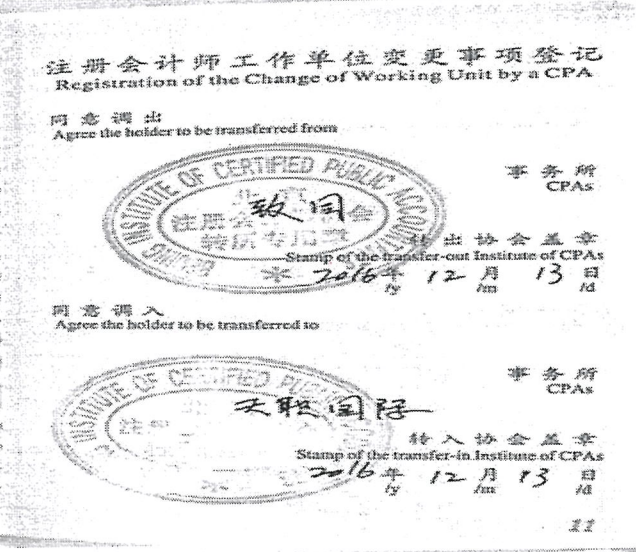 注册会计师工作单位变更事项登记
Registration of the Change of Working Unit by a CPA
同意调出
Agree the holder to be transferred from
BEIJING INSTITUTE OF CERTIFIED PUBLIC ACCOUNTANTS
致同
事务所
CPAs
注册会
转所专用章
转出协会盖章
Stamp of the transfer-out Institute of CPAs
2016年 12月 13日
/y /m /d
同意调入
Agree the holder to be transferred to
INSTITUTE OF CERTIFIED PUBLIC
天职国际
事务所
CPAs
转入协会盖章
Stamp of the transfer-in Institute of CPAs
2016年 12月 13日
/y /m /d
11